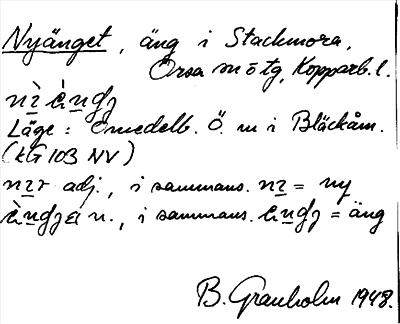 Nyänget, äng i Stackmora,
Orsa sn o tg, Kopparb. l.
Läge: Omedelb. Ö. om i Bläckåm.
(kG 103 NV)
adj., i sammans. = ny
n., i sammans. = äng
B. Granholm 1948.